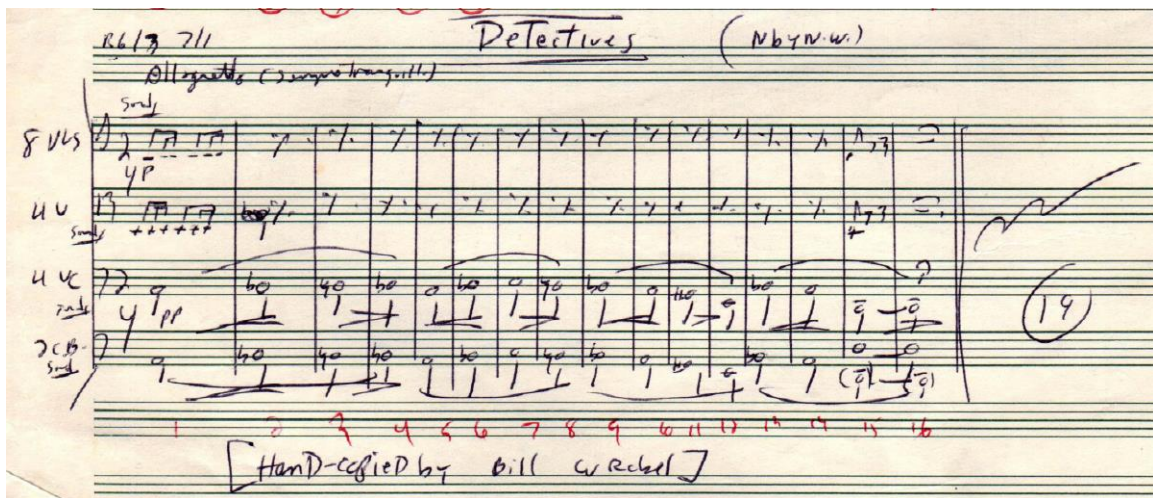 R6/3 7/1 Detectives (N by N.W.)
Allegretto (sempre tranquillo)
Sords
8 VLS 2
4 P
4 V
Sords
4 VC 2
Sords 4 PP
2 CB
Sords
19
1 2 3 4 5 6 7 8 9 10 11 12 13 14 15 16
[HanD-copieD by Bill Wrobel]